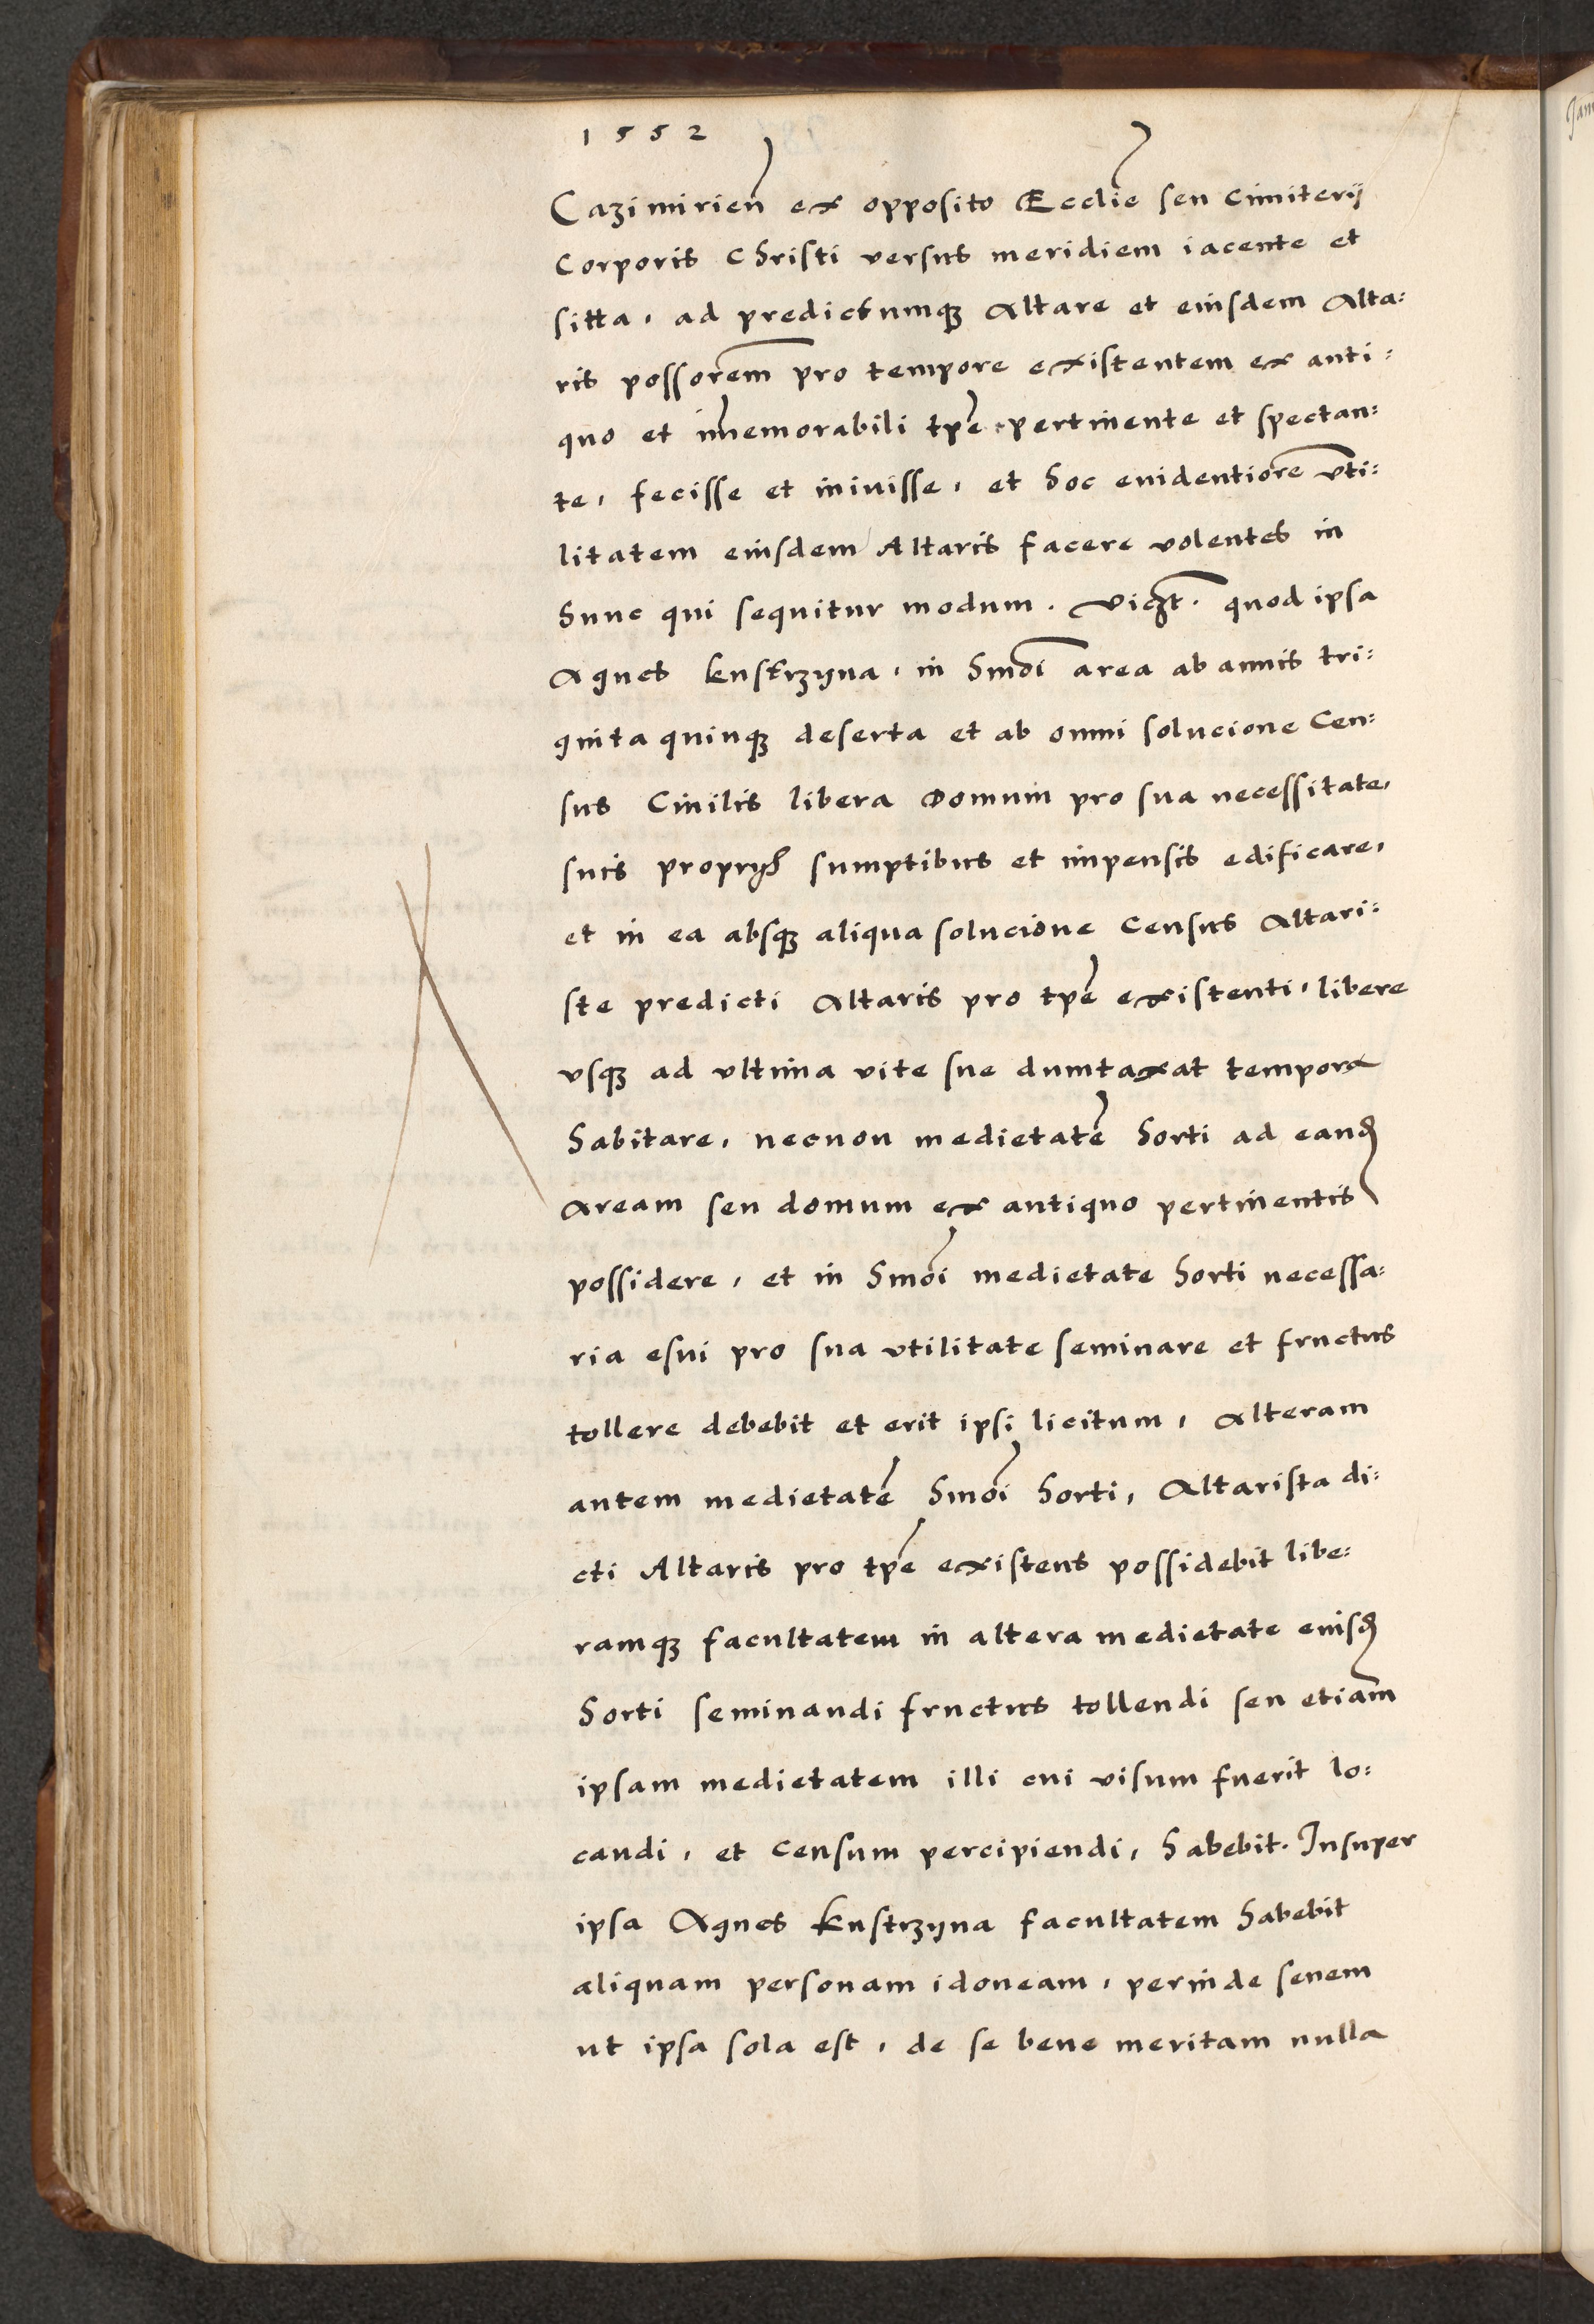 1552
Cazimirien̄ ex opposito Ecclie seu Cimiterij
Corporis Christi versus meridiem iacente et
sitta, ad predictumqꝫ Altare et eiusdem Alta:
ris possorem pro tempore existentem ex anti:
quo et imemorabili tpe pertinente et spectan:
te, fecisse et iniuisse, et hoc euidentiore vti:
litatem eiusdem Altaris facere volentes in
hunc qui sequitur modum. viczt. quod ipsa
Agnes Kustrzyna, in hmoi area ab annis tri:
ginta quinqꝫ deserta et ab omni solucione Cen:
sus Ciuilis libera Domum pro sua necessitate,
suis proprijs sumptibus et impensis edificare,
et in ea absqꝫ aliqua solucione Census Altari:
ste predicti Altaris pro tpe existenti, libere
vsqꝫ ad vltima vite sue dumtaxat tempora
habitare, necnon medietatē horti ad eand
aream seu domum ex antiquo pertinentis
possidere, et in hmoi medietate horti necessa:
ria esui pro sua vtilitate seminare et fructus
tollere debebit et erit ipsi licitum, Alteram
autem medietatē hmoi horti, Altarista di:
cti Altaris pro tpe existens possidebit libe:
ramqꝫ facultatem in altera medietate eiusd
horti seminandi fructus tollendi seu etiam
ipsam medietatem illi cui visum fuerit lo:
candi, et Censum percipiendi, habebit. Insuper
ipsa Agnes Kustrzyna facultatem habebit
aliquam personam idoneam, perinde senem
ut ipsa sola est, de se bene meritam nulla